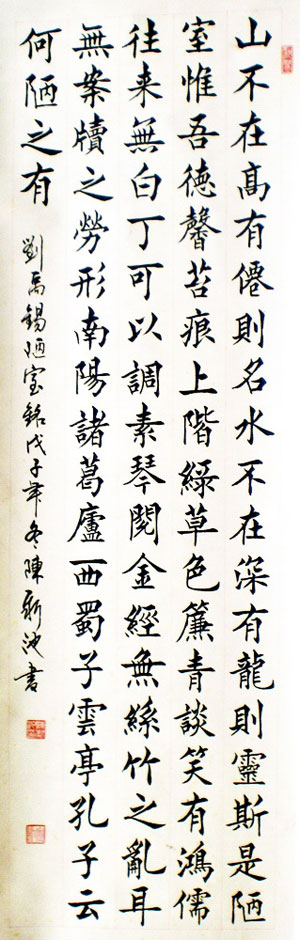 山不在高有僊則名水不在深有龍則靈斯是陋
室惟吾徳馨苔痕上階緑草色簾青談笑有鴻儒
往来無白丁可以調素琴閲金經無絲竹之亂耳
無案牘之勞形南陽諸葛廬西蜀子雲亭孔子云
何陋之有
劉禹錫陋室銘戊子年冬陳新池書